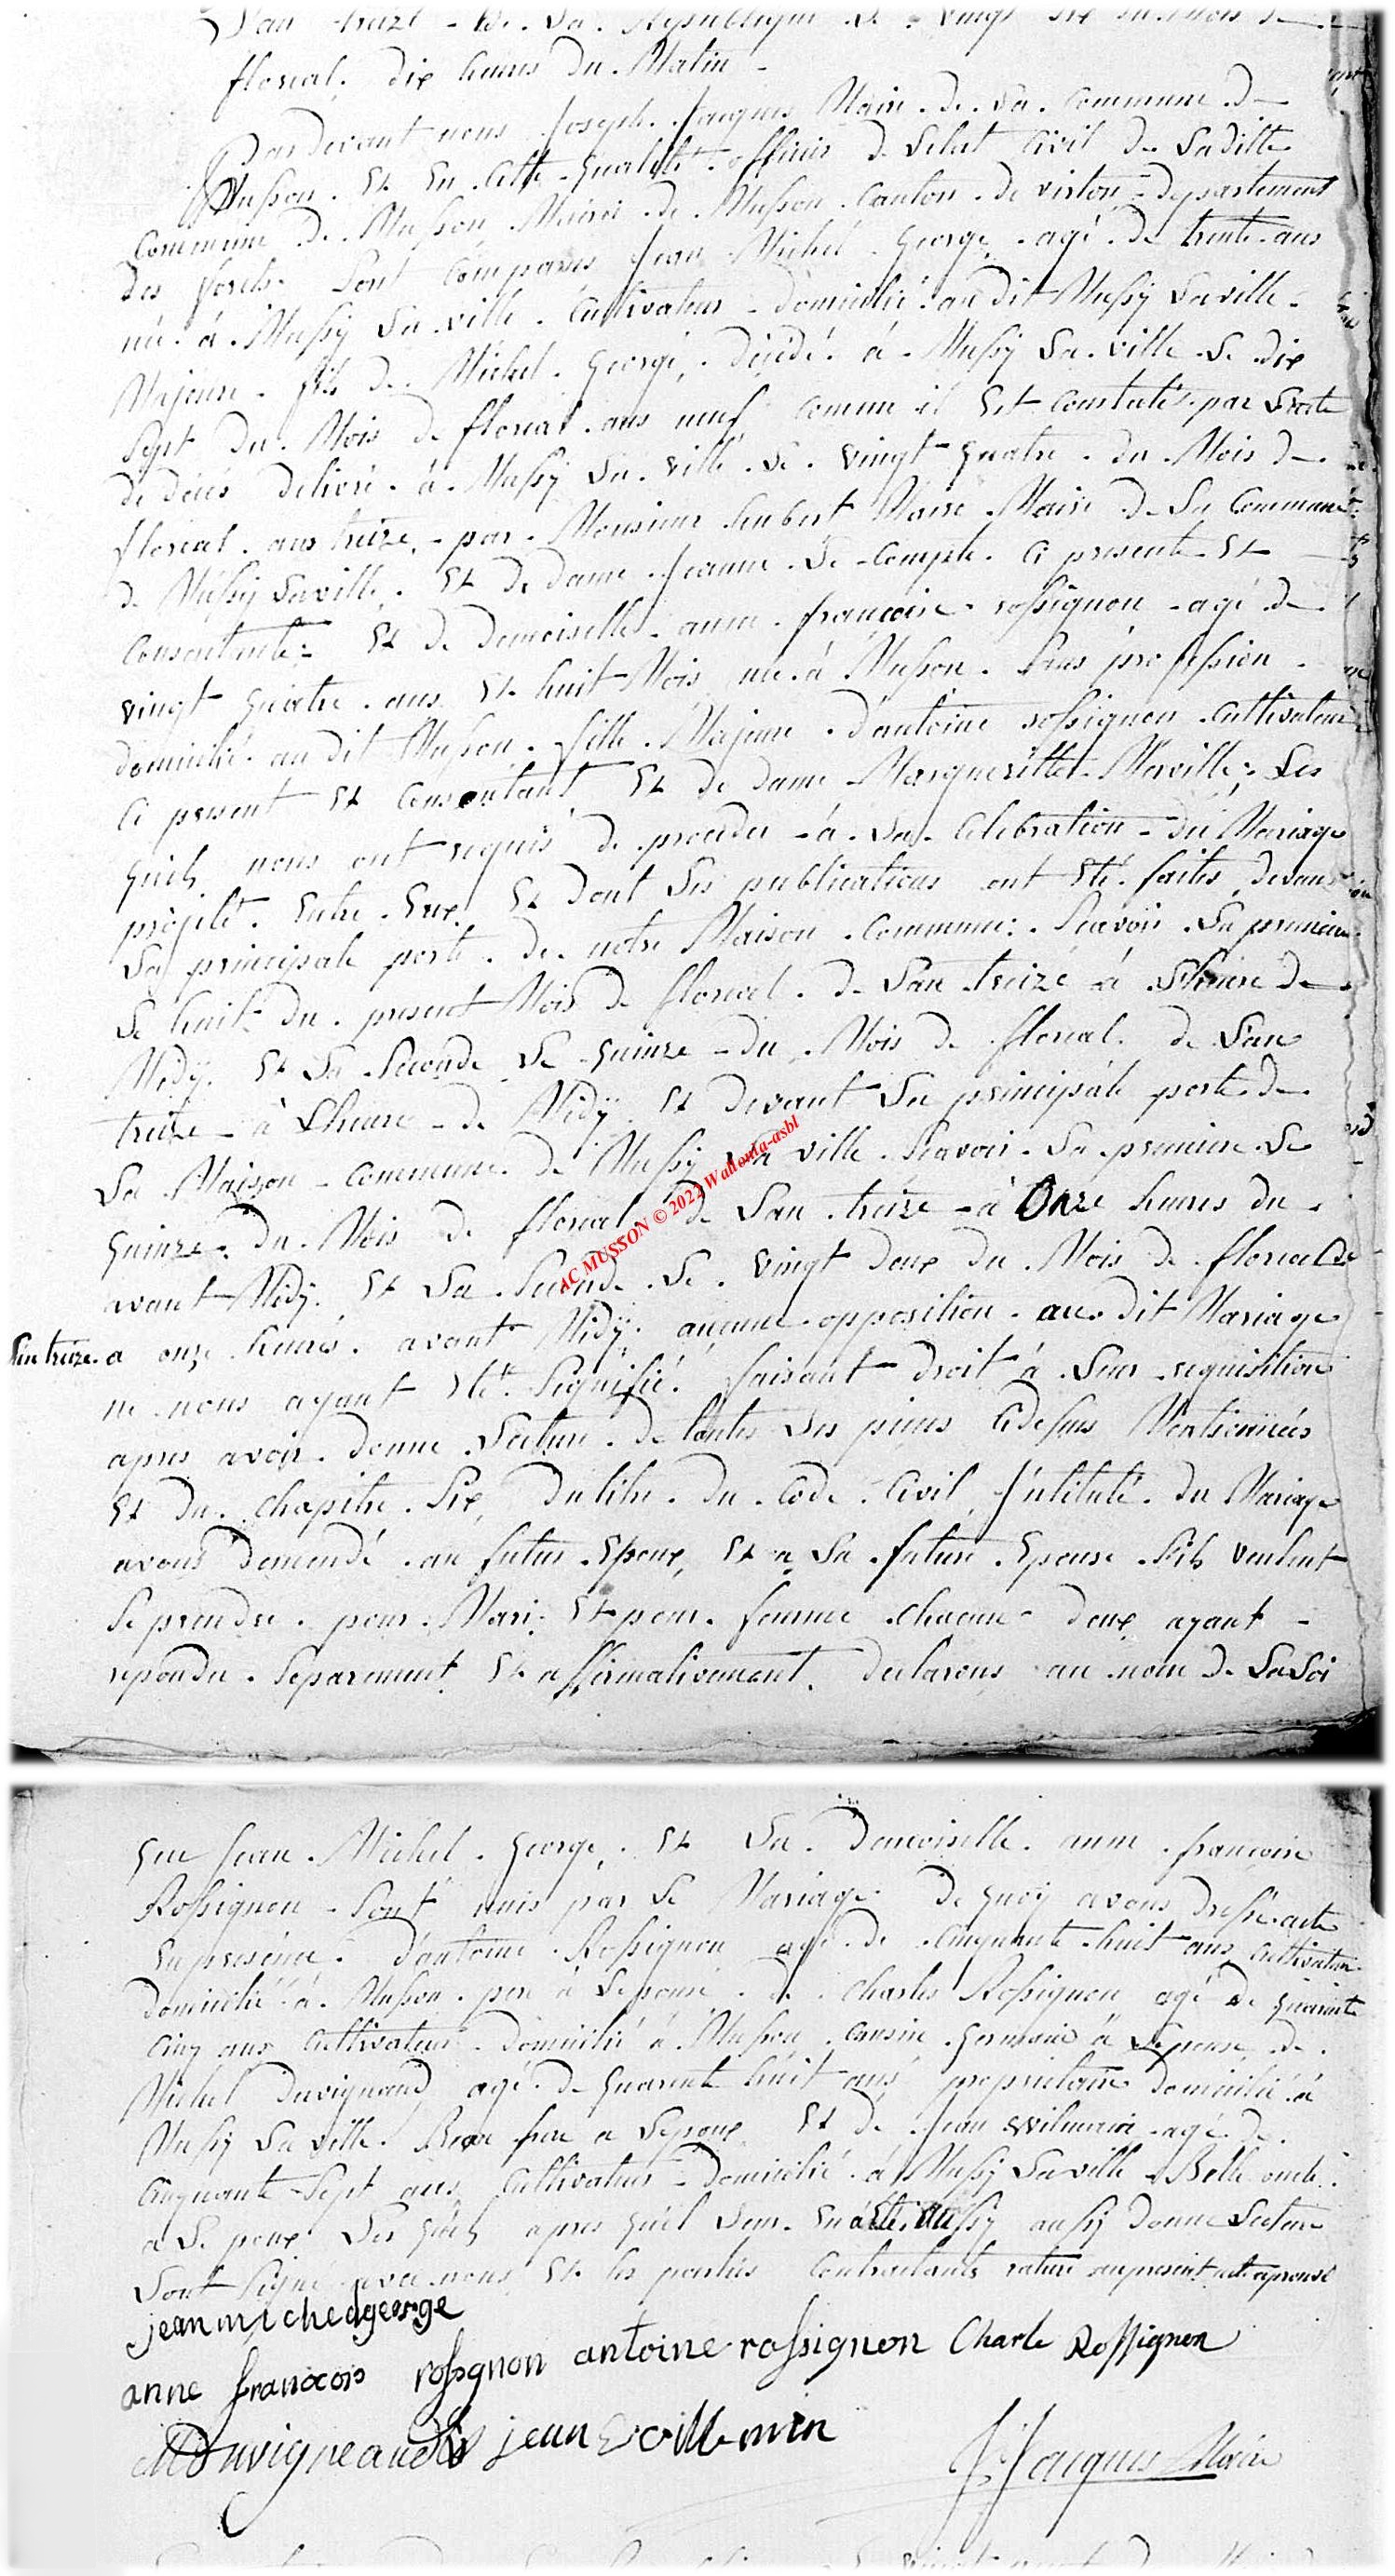 L'an treize de La Republique Le vingt six du mois de
florial. dix heures du Matin
Pardevant nous Joseph. Jacques Maire de La Commune de
Musson. Et En Cette qualité officier de Letat Civil de Laditte
Commune de Musson Mairie de Musson Canton de virton departement
des forets. Sont Comparus Jean Michel George agé de trente ans
né à Mussy La ville. Cultivateur domicilié audit Mussy Laville
Majeure. fils de Michel George, décédé à Mussy La ville Le dix
Sept du Mois de florial ans neuf comme il Est Constaté par Lacte
de décés délivré à Mussy La ville Le vingt quatre du Mois de
florial ans treize, par Monsieur hubert Maire Maire de La Commune
de Mussy Laville. Et de dame Jeanne Le Comple Ci presente Et
Consentente: Et de demoiselle anne françoise rossignon agé de
vingt quatre ans Et huit Mois né à Musson. Sans profession
domicilié audit Musson. fille Majeure d'antoine rossignon Cultivateur
Ci present Et Consentant, Et de dame Margueritte Merville; Les
quels nous ont requis de proceder à La Celebration du Mariage
projeté Entre Eux Et dont Les publications ont Eté faites devant
La principale porte de notre Maison Commune: Scavoir La premiere
Le huit du present Mois de florial de Lan treize à Lheure de
Midÿ. Et La Seconde Le quinze du Mois de florial de Lan
treize à Lheure de Midÿ Et devant La principale porte de
La Maison Commune de Mussy La ville Scavoir La premiere Le
quinze du Mois de florial de Lan treize à Onze heures du
avant Midÿ. Et La Seconde Le vingt deux du Mois de florial de
Lan treize a onze heures avant Midÿ; aucune opposition audit Mariage
ne nous ayant Eté Signifié. faisant droit à Leur requisition
apres avoir donne Lecture de toutes Les pieces Cidessus Mentionnées
Et du chapitre Six du titre du Code Civil Intitulé du Mariage
avons demandé au futur Epoux, Et a La future Epouse Sils veulent
Se prendre pour Mari Et pour femme chacun deux ayant
repondu Separement Et affirmativement. declarons au nom de La Loi
que Jean Michel George, Et La demoiselle anne françoise
Rossignon Sont unis par Le Mariage de quoÿ avons dressé acte
En presence d'antoine Rossignon agé de Cinquante huit ans Cultivateur
domicilié à Musson pere à Lepouse de Charles Rossignon agé de quarante
Cinq ans Cultivateur domicilié à Musson Cousin Germain à Lepouse, de
Michel duvignaud agé de quarante huit ans proprietaire domicilié à
Mussy La ville. Beau frere a Lepoux Et de Jean Wilmain agé de
Cinquante Sept ans Cultivateur domicilié à Mussy Laville Belle oncle
a Le poux Les quels apres quil Leur En a Eté aussy donne Lecture
Sont Signé avec nous Et les parties Contractants
jean michel george
anne francois rossgnon antoine rossignon Charle Rossignon
MDuvigneaud jean Willemin
JJacques Maire
AC MUSSON © 2022 Wallonia-asbl